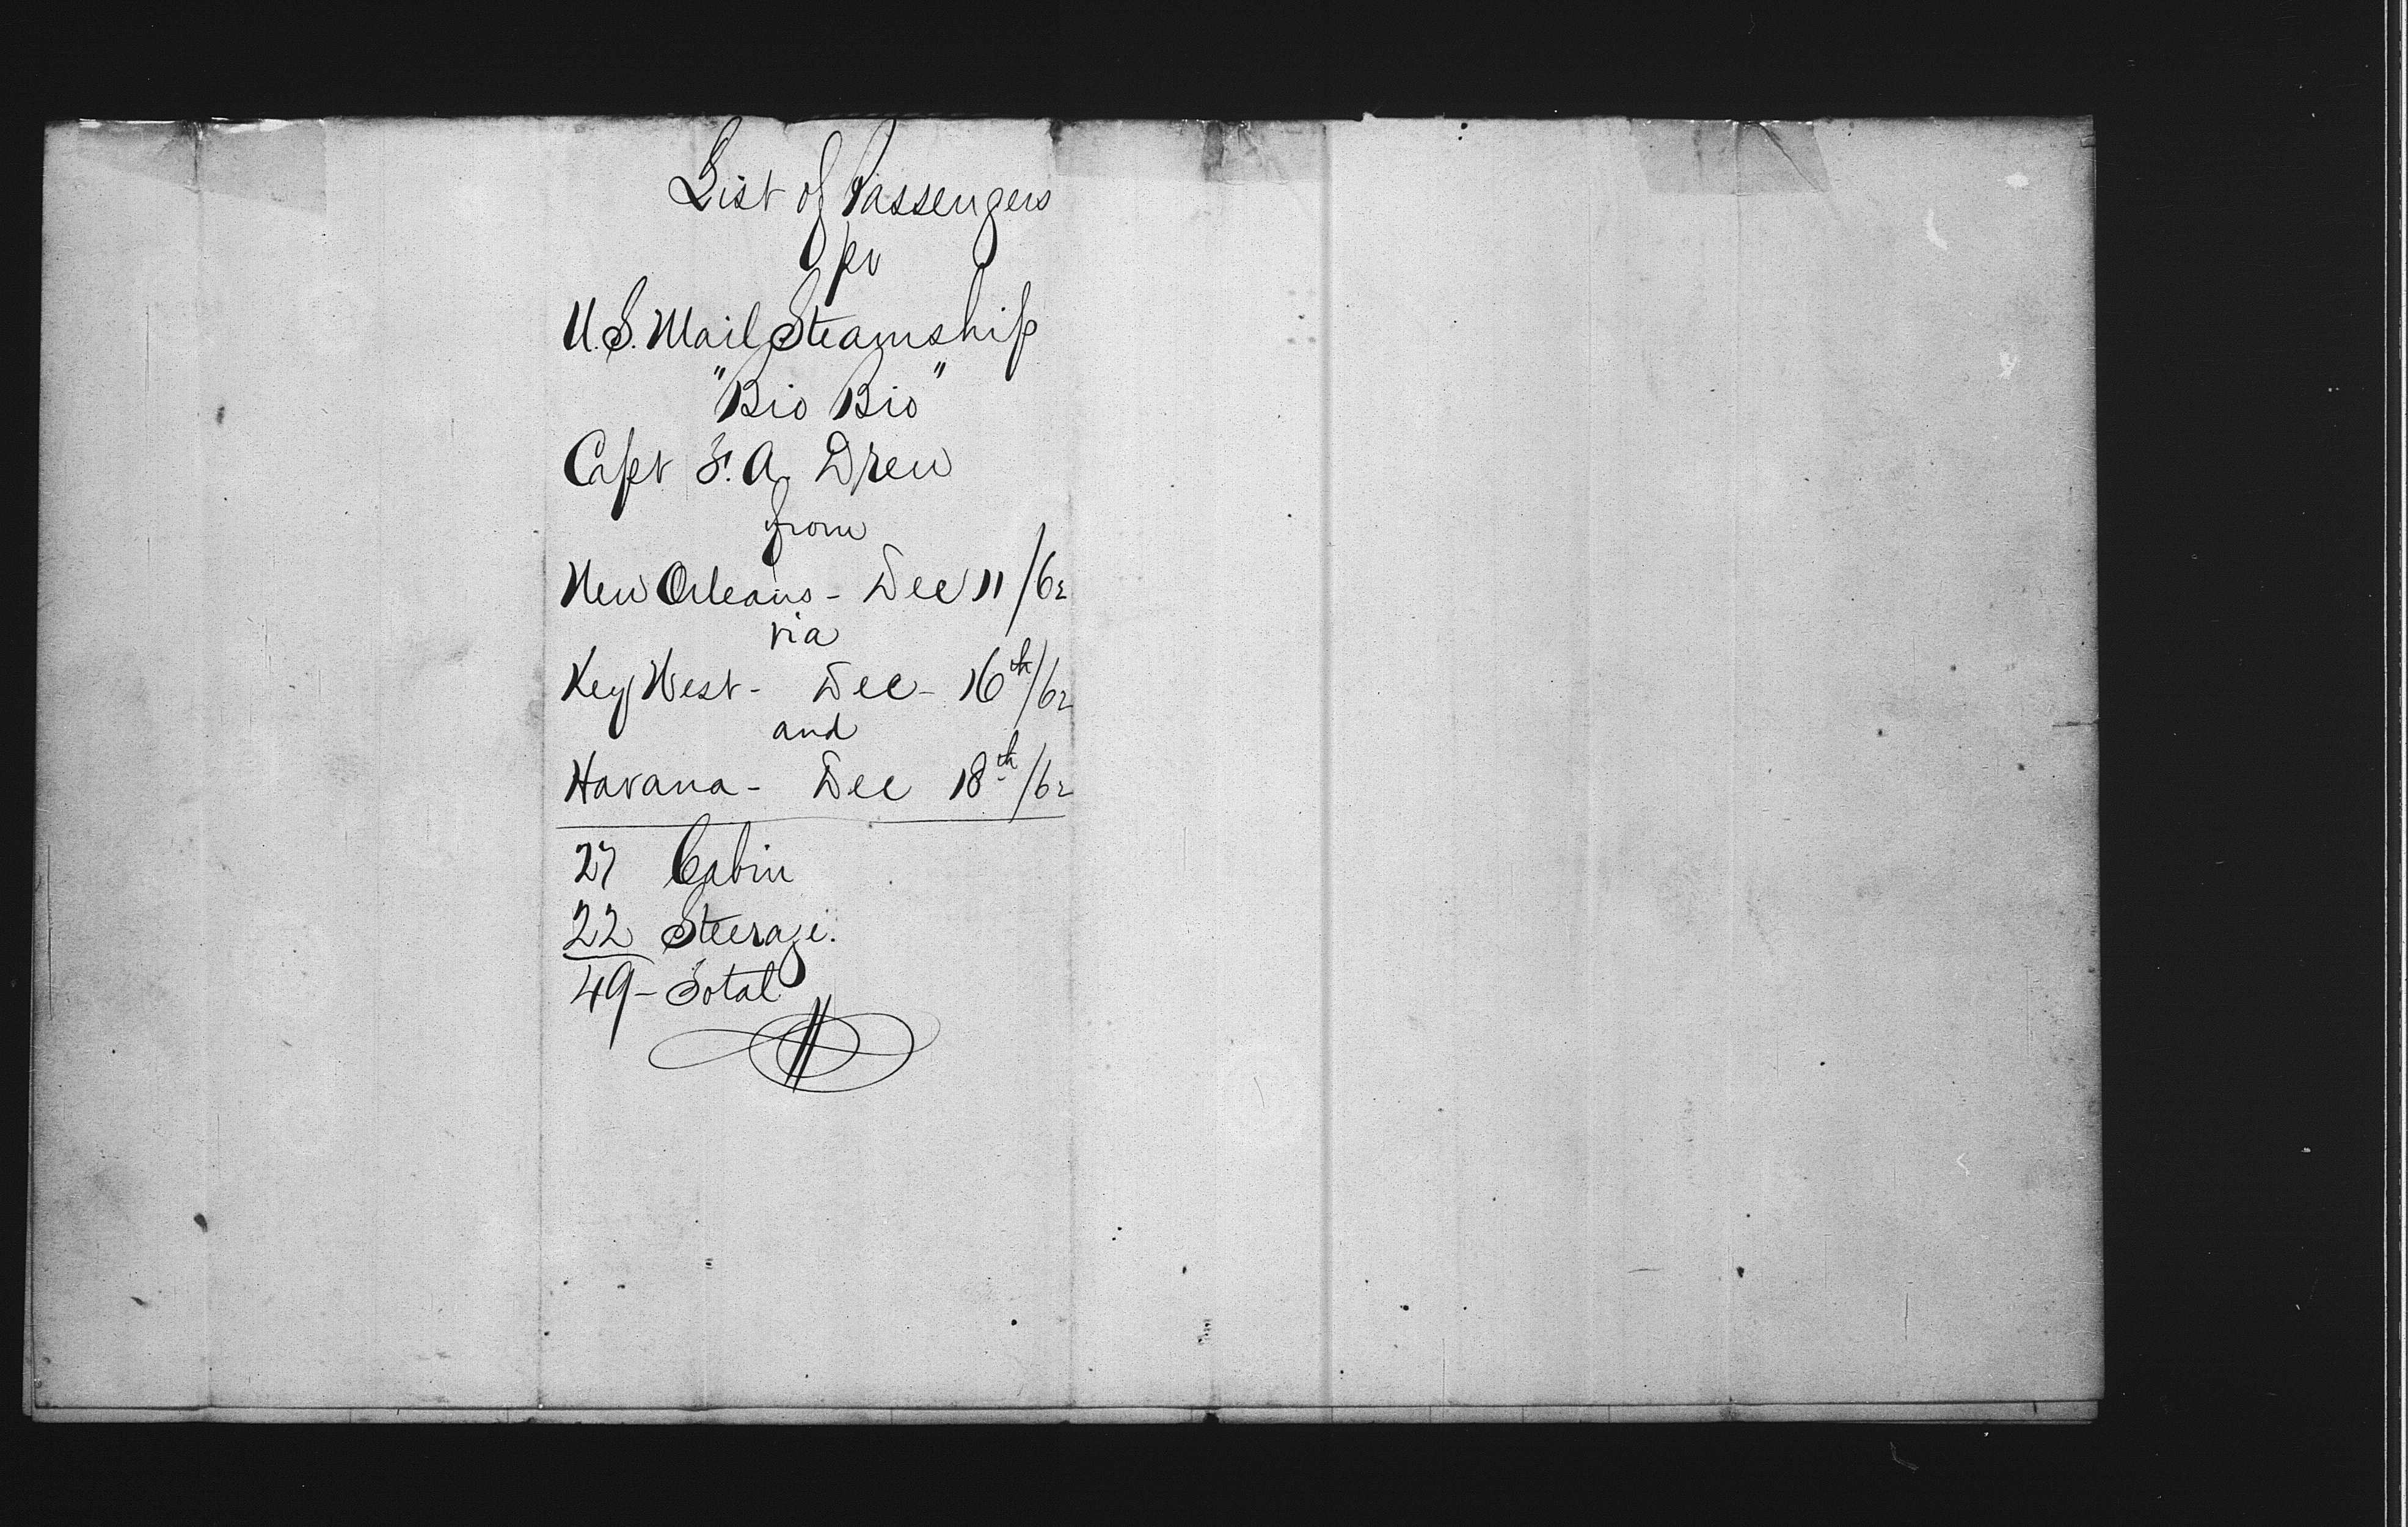 List of Passengers
pr
U.S. Mail Steamship
"Bio Bio"
Capt F. A. Drew
from
New Orleans - Dec 11/62
via
Key West - Dec - 16th/62
and
Havana - Dec 18th/62
27 Cabin
22 Steerage.
49 - Total